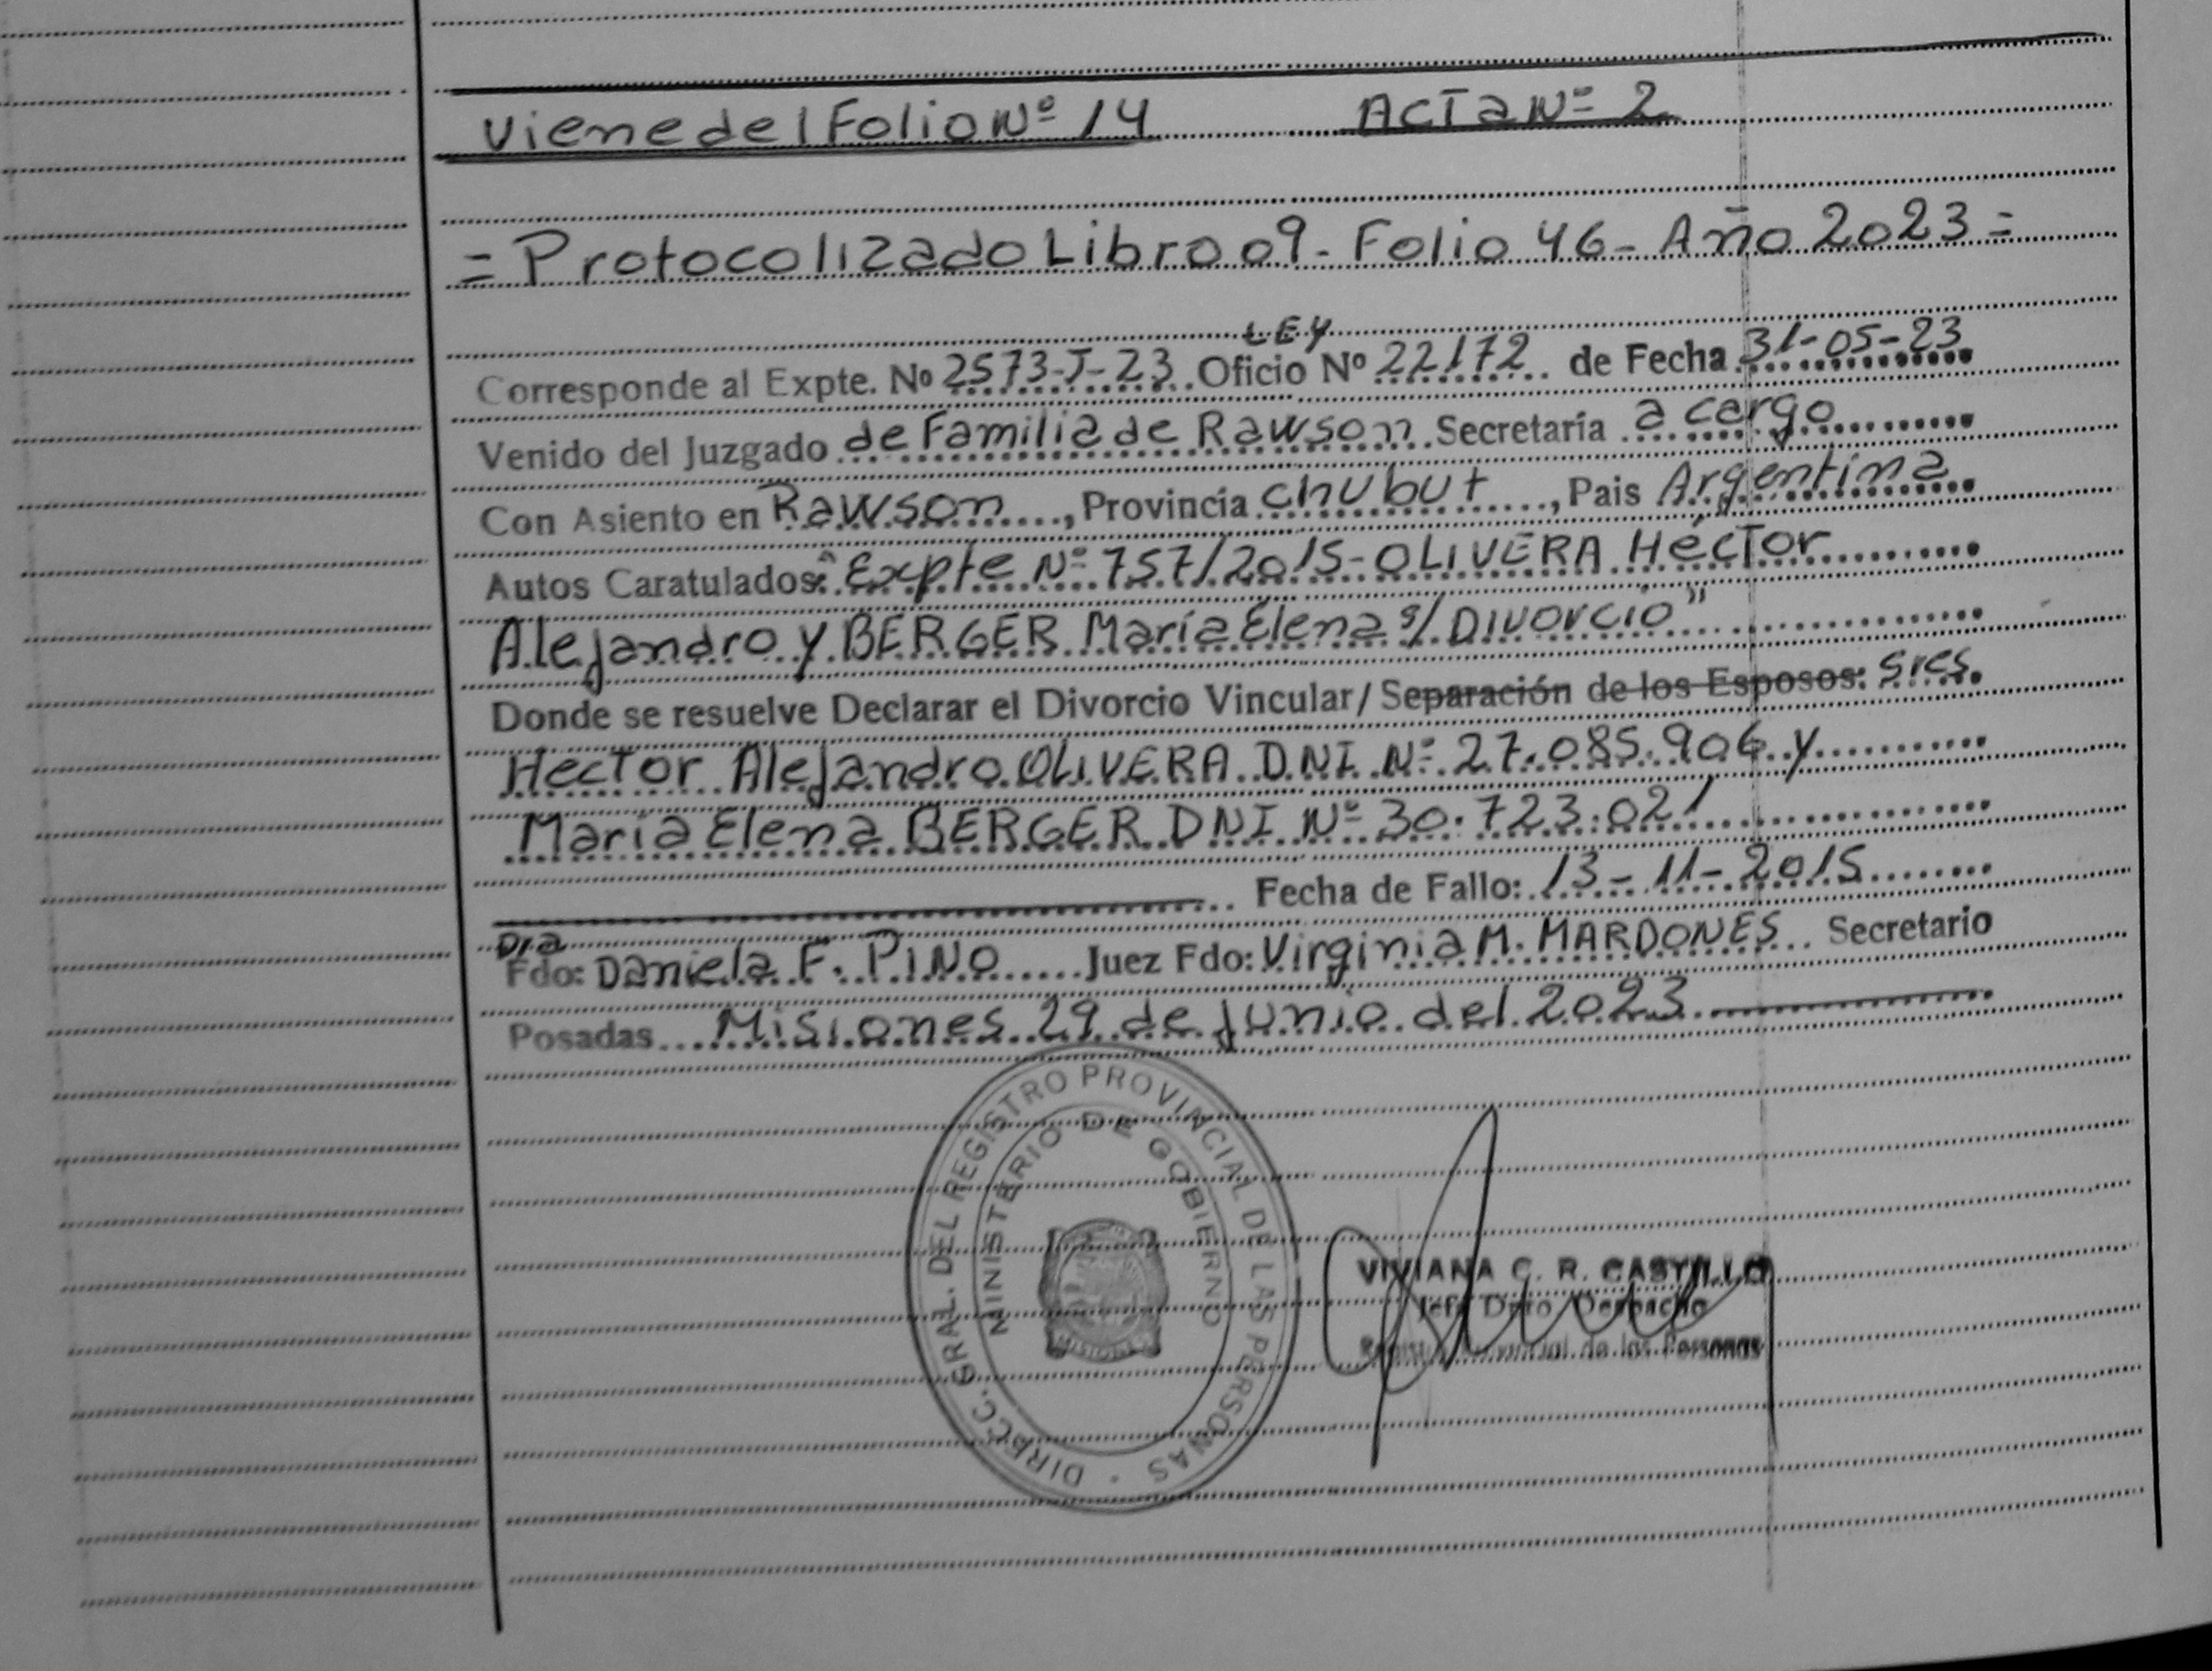 Viene del Folio Nº 14 ACTA Nº 2
= Protocolizado Libro 09 - Folio 46 - Año 2023 =
LEY
Corresponde al Expte. No 2573-J-23 Oficio Nº 22172 de Fecha 31-05-23
Venido del Juzgado de Familia de Rawson Secretaría a cargo
Con Asiento en Rawson, Provincia Chubut, Pais Argentina
Autos Caratulados: "Expte Nº 757/2015 - OLIVERA Héctor
Alejandro y BERGER María Elena s/ Divorcio"
Donde se resuelve Declarar el Divorcio Vincular/ Separación de los Esposos: Sres.
Hector Alejandro OLIVERA DNI Nº 27.085.906 y
María Elena BERGER DNI Nº 30.723.021
Fecha de Fallo: 13-11-2015
Dra
Fdo: Daniela F. PINO Juez Fdo: Virginia M. MARDONES Secretario
Posadas Misiones 29 de Junio del 2023
DIRECC. GRAL. DEL REGISTRO PROVINCIAL DE LAS PERSONAS
MINISTERIO DE GOBIERNO
MISIONES
VIVIANA C. R. CASTILLO
Jefe Dpto Despacho
Registro Provincial de las Personas